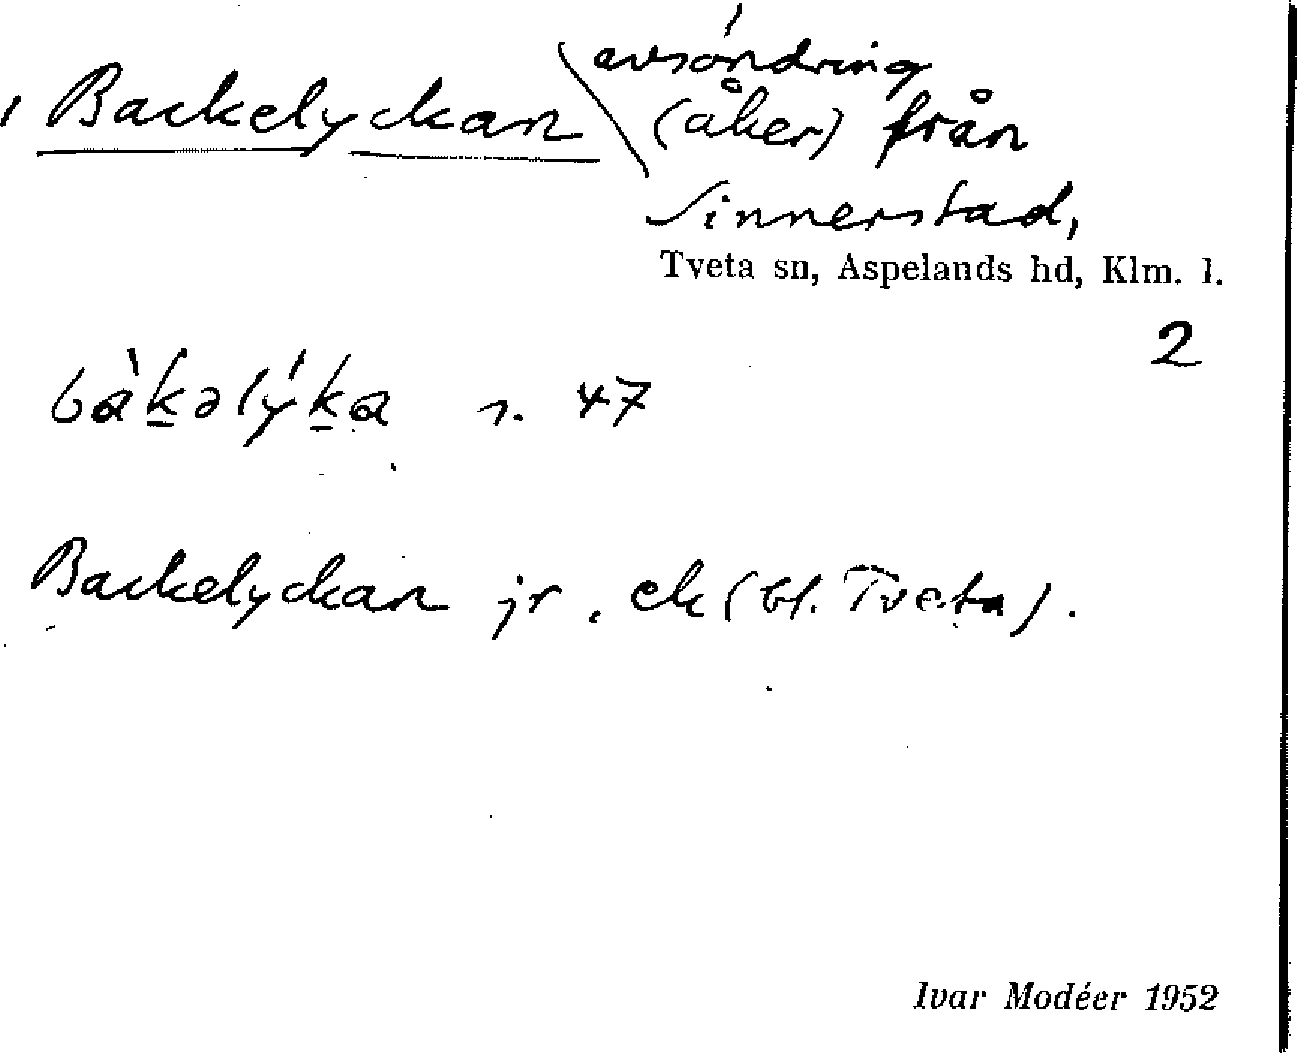 Backelyckan avsöndring
(åker) från
Sinnerstad,
Tveta sn, Aspelands hd, Klm. l.
2
bàkəlýka s. 47
Backelyckan jr, ek (bl. Tveta).
Ivar Modéer 1952